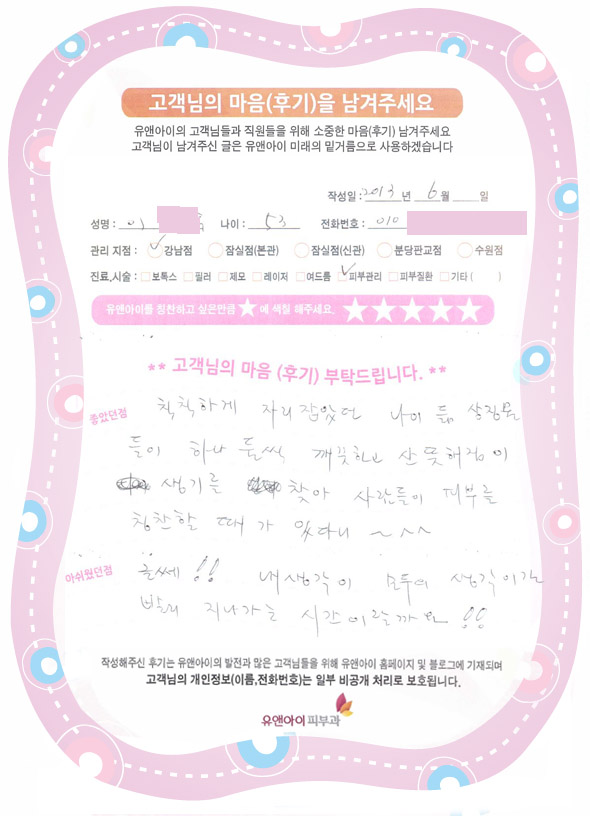 고객님의 마음(후기)을 남겨주세요
유앤아이의 고객님들과 직원들을 위해 소중한 마음(후기) 남겨주세요
고객님이 남겨주신 글은 유앤아이 미래의 밑거름으로 사용하겠습니다
작성일 : 2013 년 6 월 일
성명 : 이 나이 : 53 전화번호 : 010
관리 지점 : 강남점 잠실점(본관) 잠실점(신관) 분당판교점 수원점
진료.시술 : 보톡스 필러 제모 레이저 여드름 피부관리 피부질환 기타 ( )
유앤아이를 칭찬하고 싶은만큼 ★ 에 색칠 해주세요. ★★★★★
** 고객님의 마음 (후기) 부탁드립니다. **
좋았던점 칙칙하게 자리잡았던 나이 듦 상징물
들이 하나 둘씩 깨끗하고 산뜻해짐이
생기를 찾아 사람들이 피부를
칭찬할 때가 있다니 ~^^
아쉬웠던점 글쎄!! 내생각이 모두의 생각이건
빨리 지나가는 시간이랄까요!!
작성해주신 후기는 유앤아이의 발전과 많은 고객님들을 위해 유앤아이 홈페이지 및 블로그에 기재되며
고객님의 개인정보(이름,전화번호)는 일부 비공개 처리로 보호됩니다.
유앤아이피부과